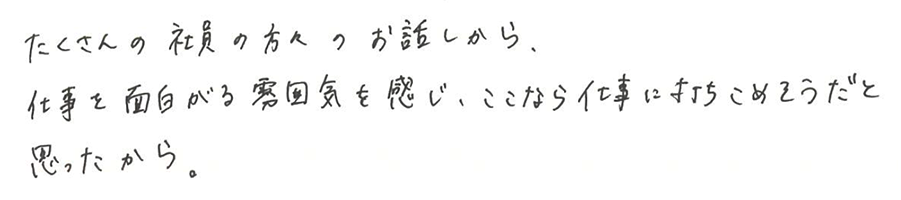 たくさんの社員の方々のお話しから、
仕事を面白がる雰囲気を感じ、ここなら仕事に打ちこめそうだと
思ったから。